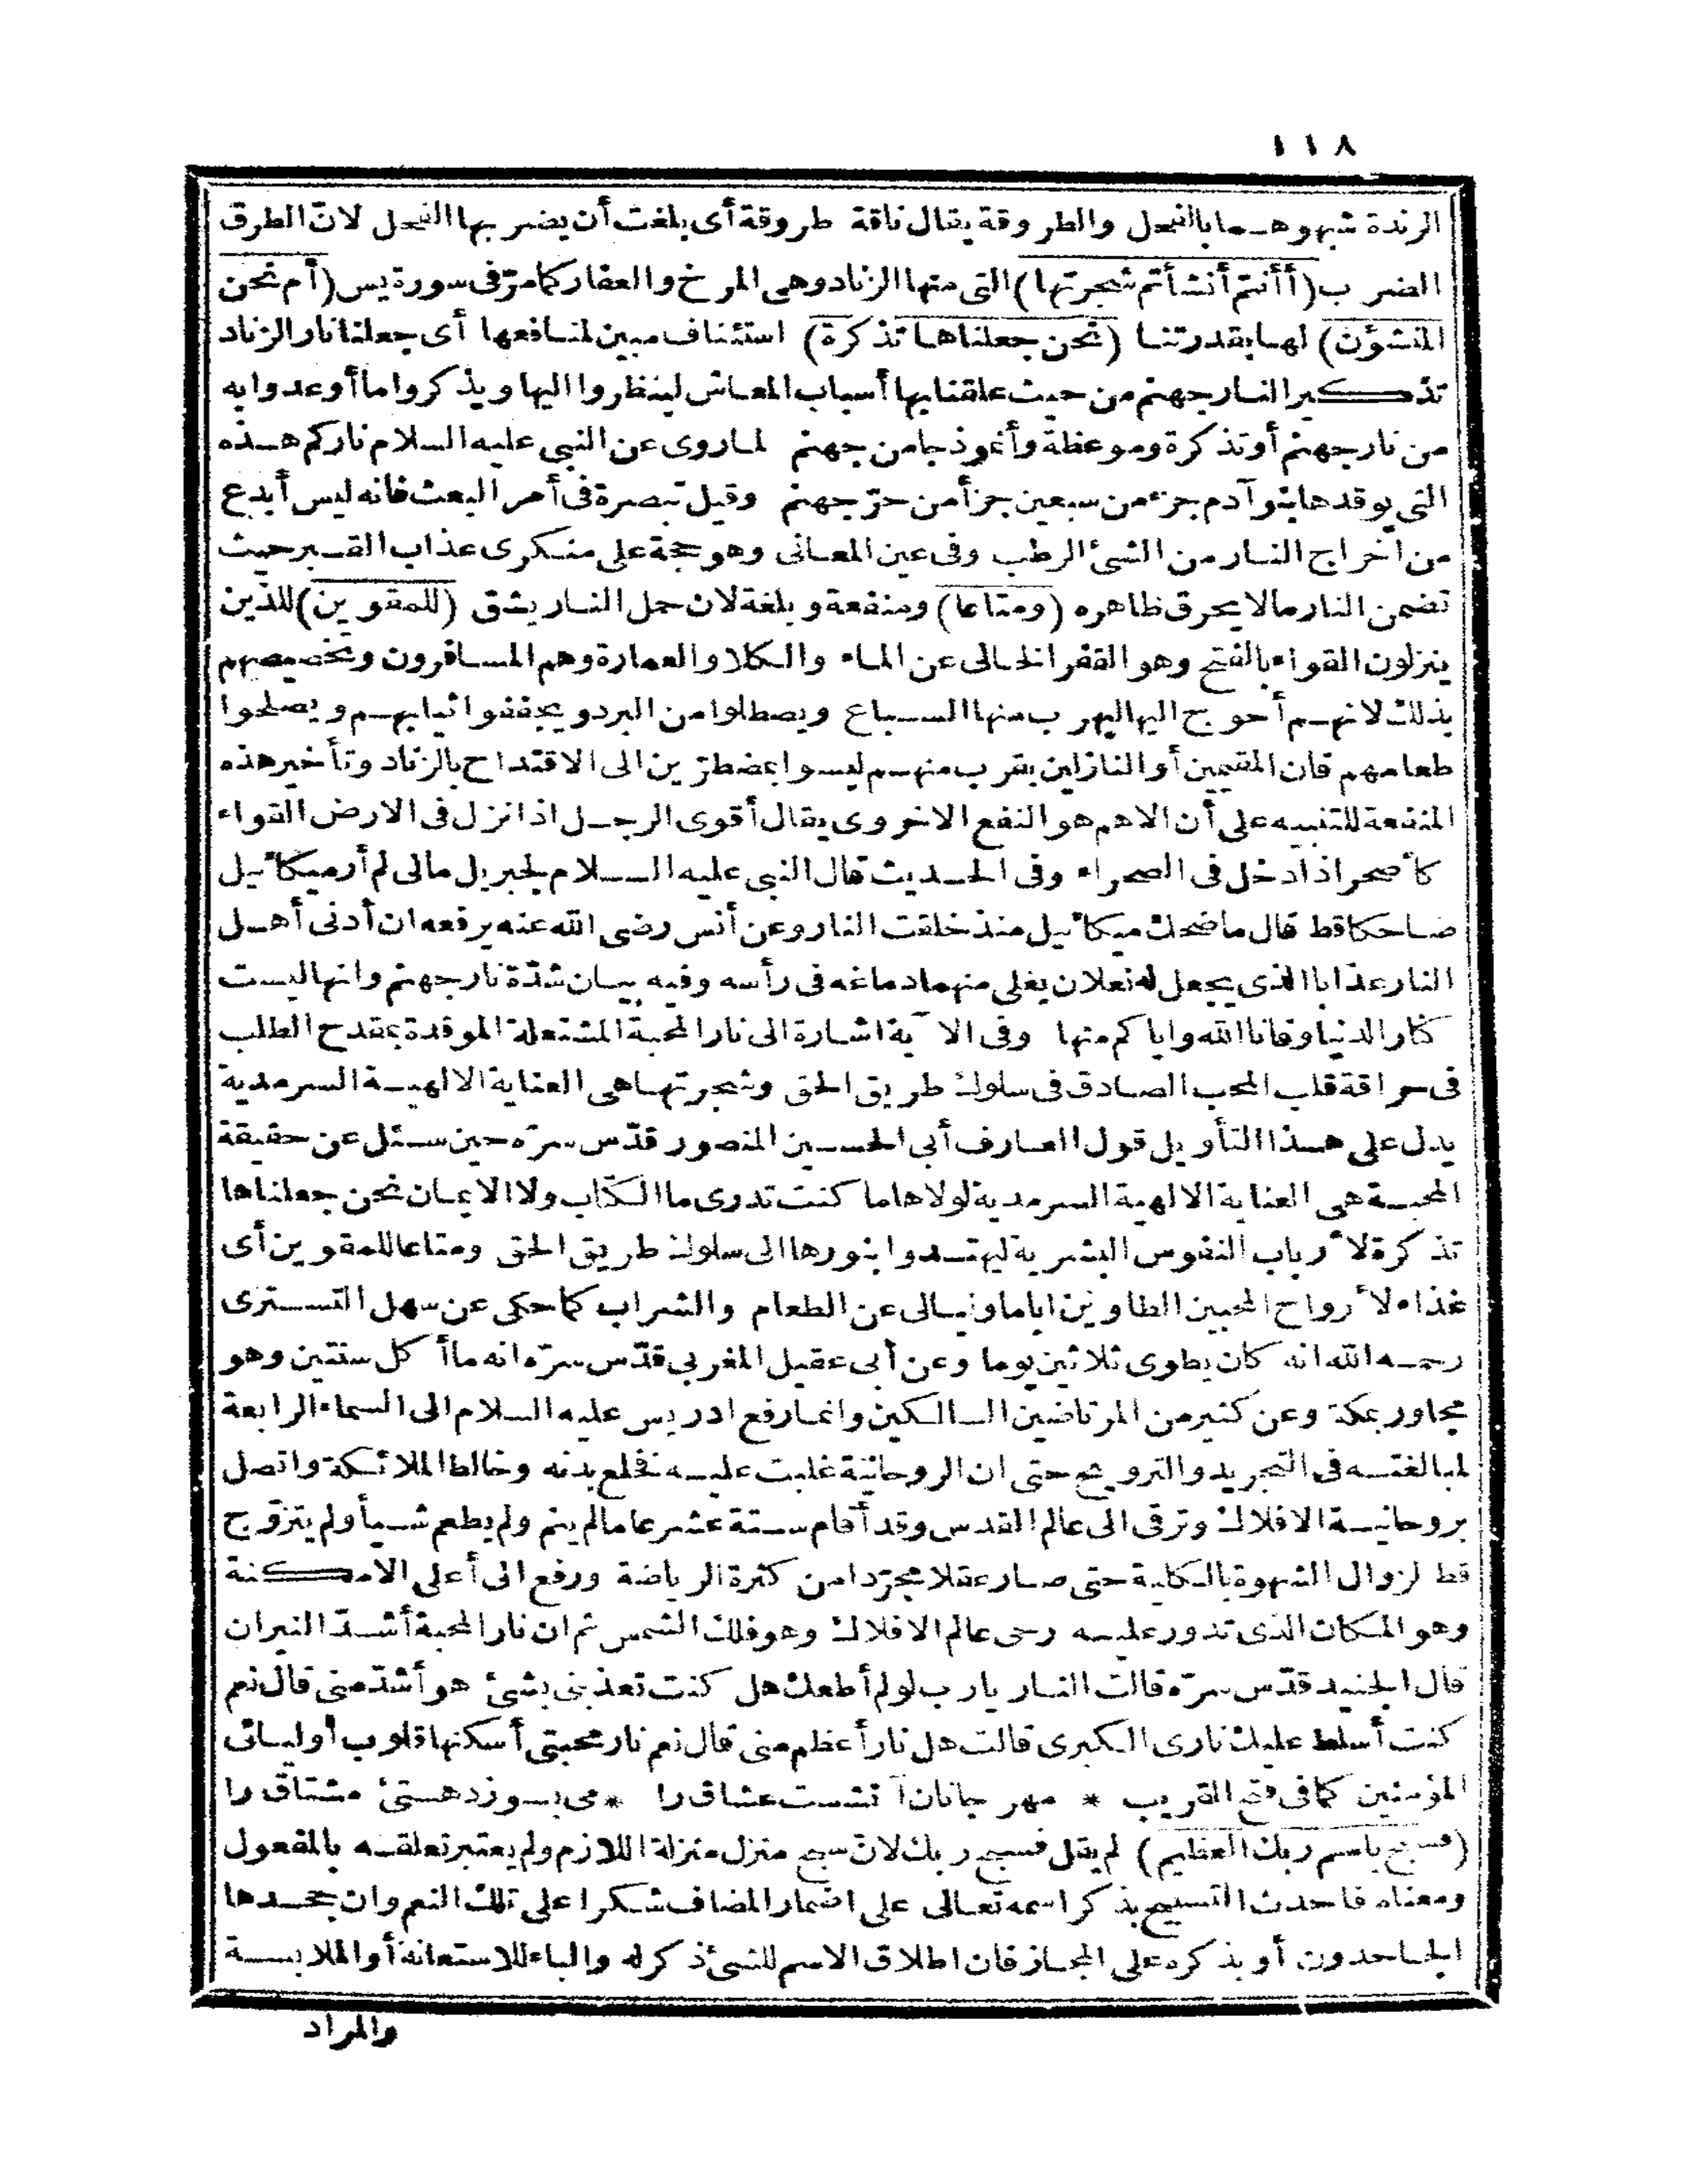 ١١٨
الزندة شبهوهما بالفحل والطروقة يقال ناقة طروقة أى بلغت أن يضربها الفحل لانّ الطرق
الضرب (أأنتم أنشأتم شجرتها) التى منها الزناد وهى المرخ والعفار كما مرّ فى سورة يس (أم نحن
المنشؤن) لها بقدرتنا (نحن جعلناها تذكرة) استئناف مبين لمنافعها أى جعلنا نار الزناد
تذكيرا لنار جهنم من حيث علقنا بها أسباب المعاش لينظروا اليها ويذكروا ما أوعدوا به
من نار جهنم أو تذكرة وموعظة وأنموذجا من جهنم لما روى عن النبى عليه السلام ناركم هذه
التى يوقدها بنو آدم جزء من سبعين جزأ من حرّ جهنم وقيل تبصرة فى أمر البعث فانه ليس أبدع
من اخراج النار من الشئ الرطب وفى عين المعانى وهو حجة على منكرى عذاب القبر حيث
تضمن النار ما لا يحرق ظاهره (ومتاعا) ومنفعة وبلغة لان حمل النار يشق (للمقوين) للذين
ينزلون القواء بالفتح وهو القفر الخالى عن الماء والكلا والعمارة وهم المسافرون وتخصيصهم
بذلك لانهم أحوج اليها ليهرب منها السباع ويصطلوا من البرد ويجففوا ثيابهم ويصلحوا
طعامهم فان المقيمين أو النازلين بقرب منهم ليسوا بمضطرّين الى الاقتداح بالزناد وتأخير هذه
المنفعة للتنبيه على أن الاهم هو النفع الاخروى يقال أقوى الرجل اذا نزل فى الارض القواء
كأصحر اذا دخل فى الصحراء وفى الحديث قال النبى عليه السلام لجبريل مالى لم أر ميكائيل
ضاحكا قط قال ما ضحك ميكائيل منذ خلقت النار وعن أنس رضى الله عنه يرفعه ان أدنى أهل
النار عذابا الذى يجعل له نعلان يغلى منهما دماغه فى رأسه وفيه بيان شدّة نار جهنم وانها ليست
كنار الدنيا وقانا الله واياكم منها وفى الآية اشارة الى نار المحبة المشتعلة الموقدة بمقدح الطلب
فى حراقة قلب المحب الصادق فى سلوك طريق الحق وشجرتها هى العناية الالهية السرمدية
يدل على هذا التأويل قول العارف أبى الحسين المنصور قدّس سرّه حين سئل عن حقيقة
المحبة هى العناية الالهية السرمدية لولاها ما كنت تدرى ما الكتاب ولا الايمان نحن جعلناها
تذكرة لأرباب النفوس البشرية ليهتدوا بنورها الى سلوك طريق الحق ومتاعا للمقوين أى
غذاء لأرواح المحبين الطاوين اياما وليالى عن الطعام والشراب كما حكى عن سهل التسترى
رحمه الله انه كان يطوى ثلاثين يوما وعن أبى عقيل المغربى قدّس سرّه انه ما أكل سنتين وهو
مجاور بمكة وعن كثير من المرتاضين السالكين وانما رفع ادريس عليه السلام الى السماء الرابعة
لمبالغته فى التجريد والترويح حتى ان الروحانية غلبت عليه فخلع بدنه وخالط الملائكة واتصل
بروحانية الافلاك وترقى الى عالم القدس وقد أقام ستة عشر عاما لم ينم ولم يطعم شيأ ولم يتزوّج
قط لزوال الشهوة بالكلية حتى صار عقلا مجرّدا من كثرة الرياضة ورفع الى أعلى الامكنة
وهو المكان الذى تدور عليه رحى عالم الافلاك وهو فلك الشمس ثم ان نار المحبة أشدّ النيران
قال الجنيد قدّس سرّه قالت النار يا رب لو لم أطعك هل كنت تعذبنى بشئ هو أشدّ منى قال نعم
كنت أسلط عليك نارى الكبرى قالت هل نار أعظم منى قال نعم نار محبتى أسكنها قلوب أوليائى
المؤمنين كما فى فتح القريب * مهر جانان آتشست عشاق را * مى بسوزد هستئ مشتاق را
(فسبح باسم ربك العظيم) لم يقل فسبح ربك لانّ سبح منزل منزلة اللازم ولم يعتبر تعلقه بالمفعول
ومعناه فاحدث التسبيح بذكر اسمه تعالى على اضمار المضاف شكرا على تلك النعم وان جحدها
الجاحدون أو بذكره على المجاز فان اطلاق الاسم للشئ ذكر له والباء للاستعانة أو الملابسة
والمراد